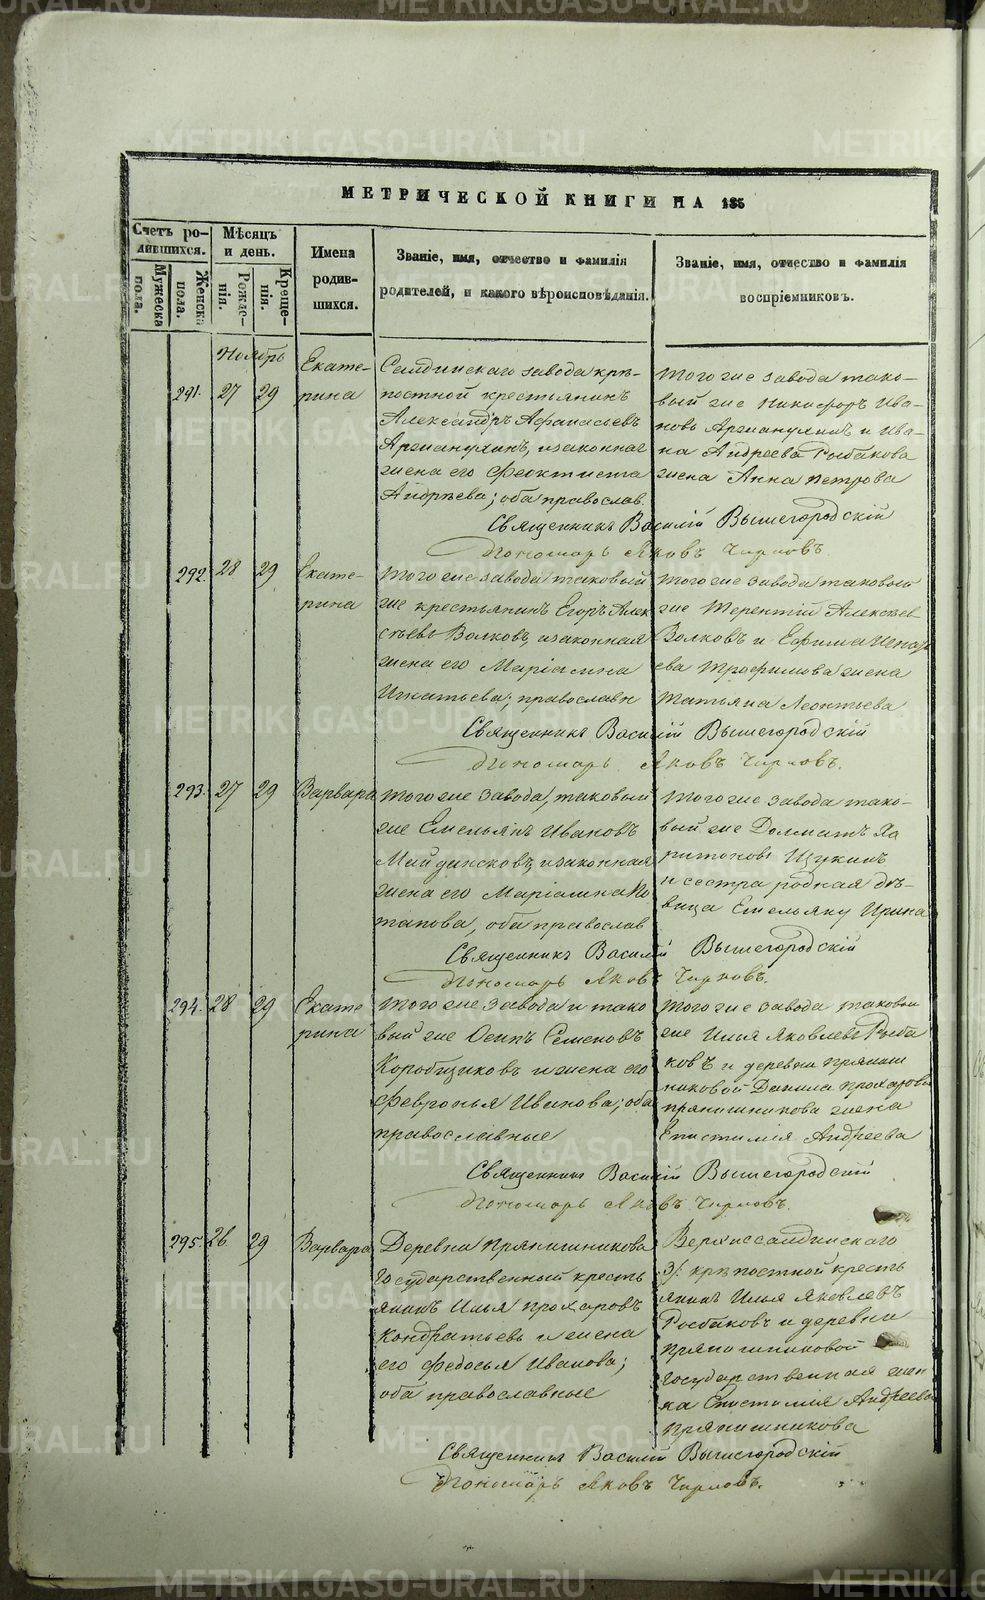 МЕТРИЧЕСКОЙ КНИГИ НА 185
Счетъ ро-
дившихся.
Мѣсяцъ
и день.
Имена
родив-
шихся.
Званіе, имя, отчество и фамилія
родителей, и какого вѣроисповѣданія.
Званіе, имя, отчество и фамилія
воспріемниковъ.
Мужеска
пола.
Женска
пола.
Рожде-
нія.
Креще-
нія.
Ноябрь
291. 27 29
Екате-
рина
Салдинскаго завода крѣ-
постной крестьянинъ
Александръ Афанасьевъ
изаконная
жена его Феоктиста
Андрѣева; оба православ
Того же завода тако-
вый же Никифоръ Ива-
новъ и Ива-
на Андреева Рыбакова
жена Анна Петрова
Священникъ Василій Вышегородскій
Пономарь Яковъ Чирковъ.
292. 28 29
Екате-
рина
Того же завода таковый
же крестьянинъ Егоръ Алек
сѣевъ Волковъ, изаконная
жена его Маріамна
Игнатьева; православн
Того же завода таковой
же Терентій Алексѣев
Волковъ и Ефима Игнать
ева Трофимова жена
Татьяна Леонтьева
Священникъ Василій Вышегородскій
Пономарь Яковъ Чирковъ.
293. 27 29
Варвара
Того же завода, таковый
же Емельянъ Ивановъ
изаконная
жена его Маріамна По
тапова, оба православ
Того же завода тако-
вый же Долматъ Ха
ритоновъ Щукинъ
и сестра родная дѣ-
вица Емельяну Ирина
Священникъ Василій Вышегородскій
Пономарь Яковъ Чирковъ.
294. 28 29
Екате
рина
Того же завода и тако
вый же Осипъ Семеновъ
Коробщиковъ и жена его
Февронья Иванова; оба
православные
Того же завода таковой
же Илья Яковлевъ Рыба
ковъ и деревни Пряниш
никовой Данила Прохарова
Прянишникова жена
Епистимія Андреева
Священникъ Василій Вышегородскій
Пономарь Яковъ Чирковъ.
295. 26 29
Варвара
Деревни Прянишникова
Государственный кресть
янинъ Илья Прохаровъ
Кондратьевъ и жена
его Федосья Иванова;
оба православные
Верхнесалдинскаго
з/. крѣпостной кресть
янинъ Илья Яковлевъ
Рыбаковъ и деревни
Прянишниковой
государственная жен
на Епистимія Андреева
Прянишникова
Священникъ Василій Вышегородскій
Пономарь Яковъ Чирковъ.
METRIKI.GASO-URAL.RU